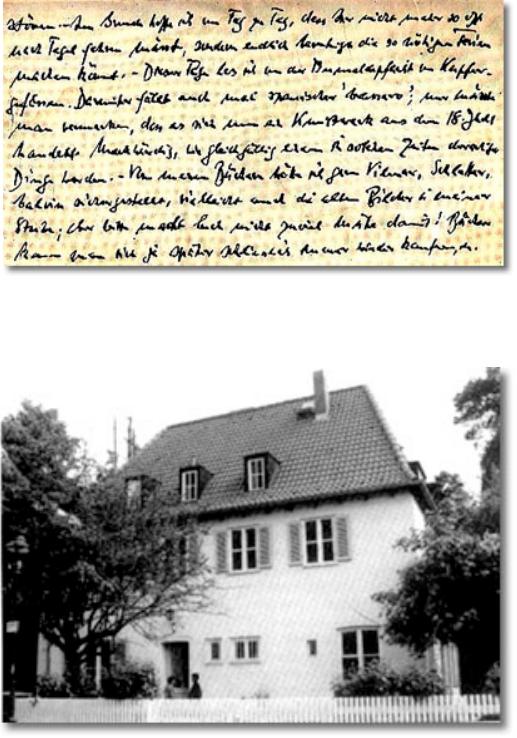 hoffe ich von Tag zu Tag, dass Ihr nicht mehr so oft
nach Tegel fahren müsst, sondern endlich die so nötigen Ferien
machen könnt. – Dieser Tage las ich von der im Kupfer-
Darunter fällt auch mal spanischer ; nur
man vermerken, dass es sich um ein Kunstwerk aus dem 18. Jhdt
handelt. Merkwürdig, wie gleichgültig einem in solchen Zeiten derartige
Dinge werden. – Von meinen Büchern hätte ich gern Vilmar, Schlatter,
Calvin sichergestellt, vielleicht auch die alten Bilder in meiner
Stube; aber bitte macht Euch nicht zuviel Mühe damit! Bücher
kann man sich ja später immer wieder kaufen,